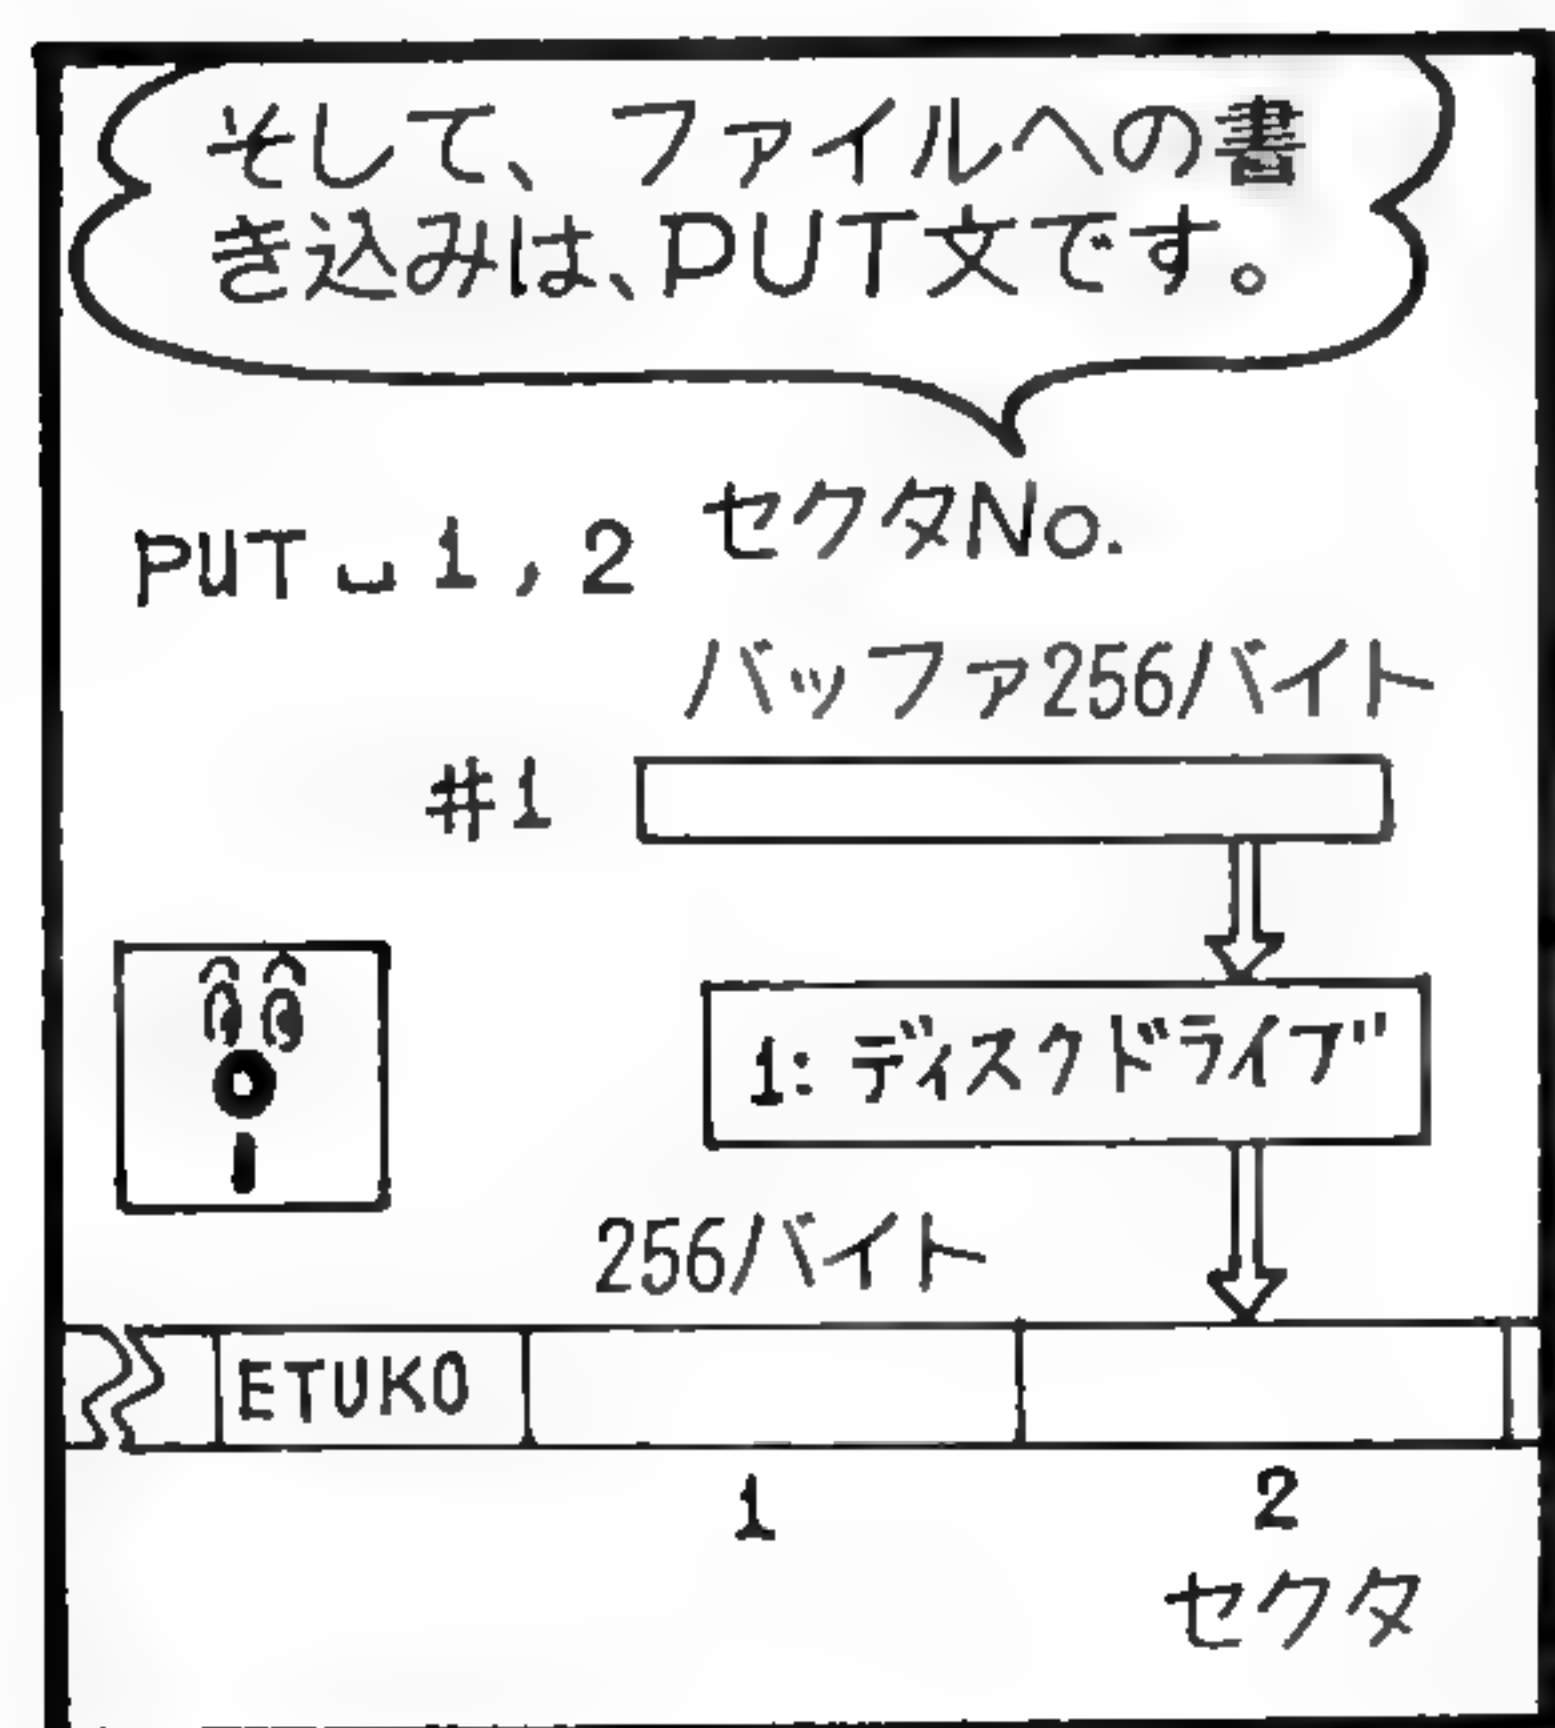 そして、ファイルへの書
き込みは、PUT文です。
セクタNo.
PUT␣1,2
バッファ256バイト
#1
1:ディスクドライブ
256バイト
ETUKO
1 2
セクタ